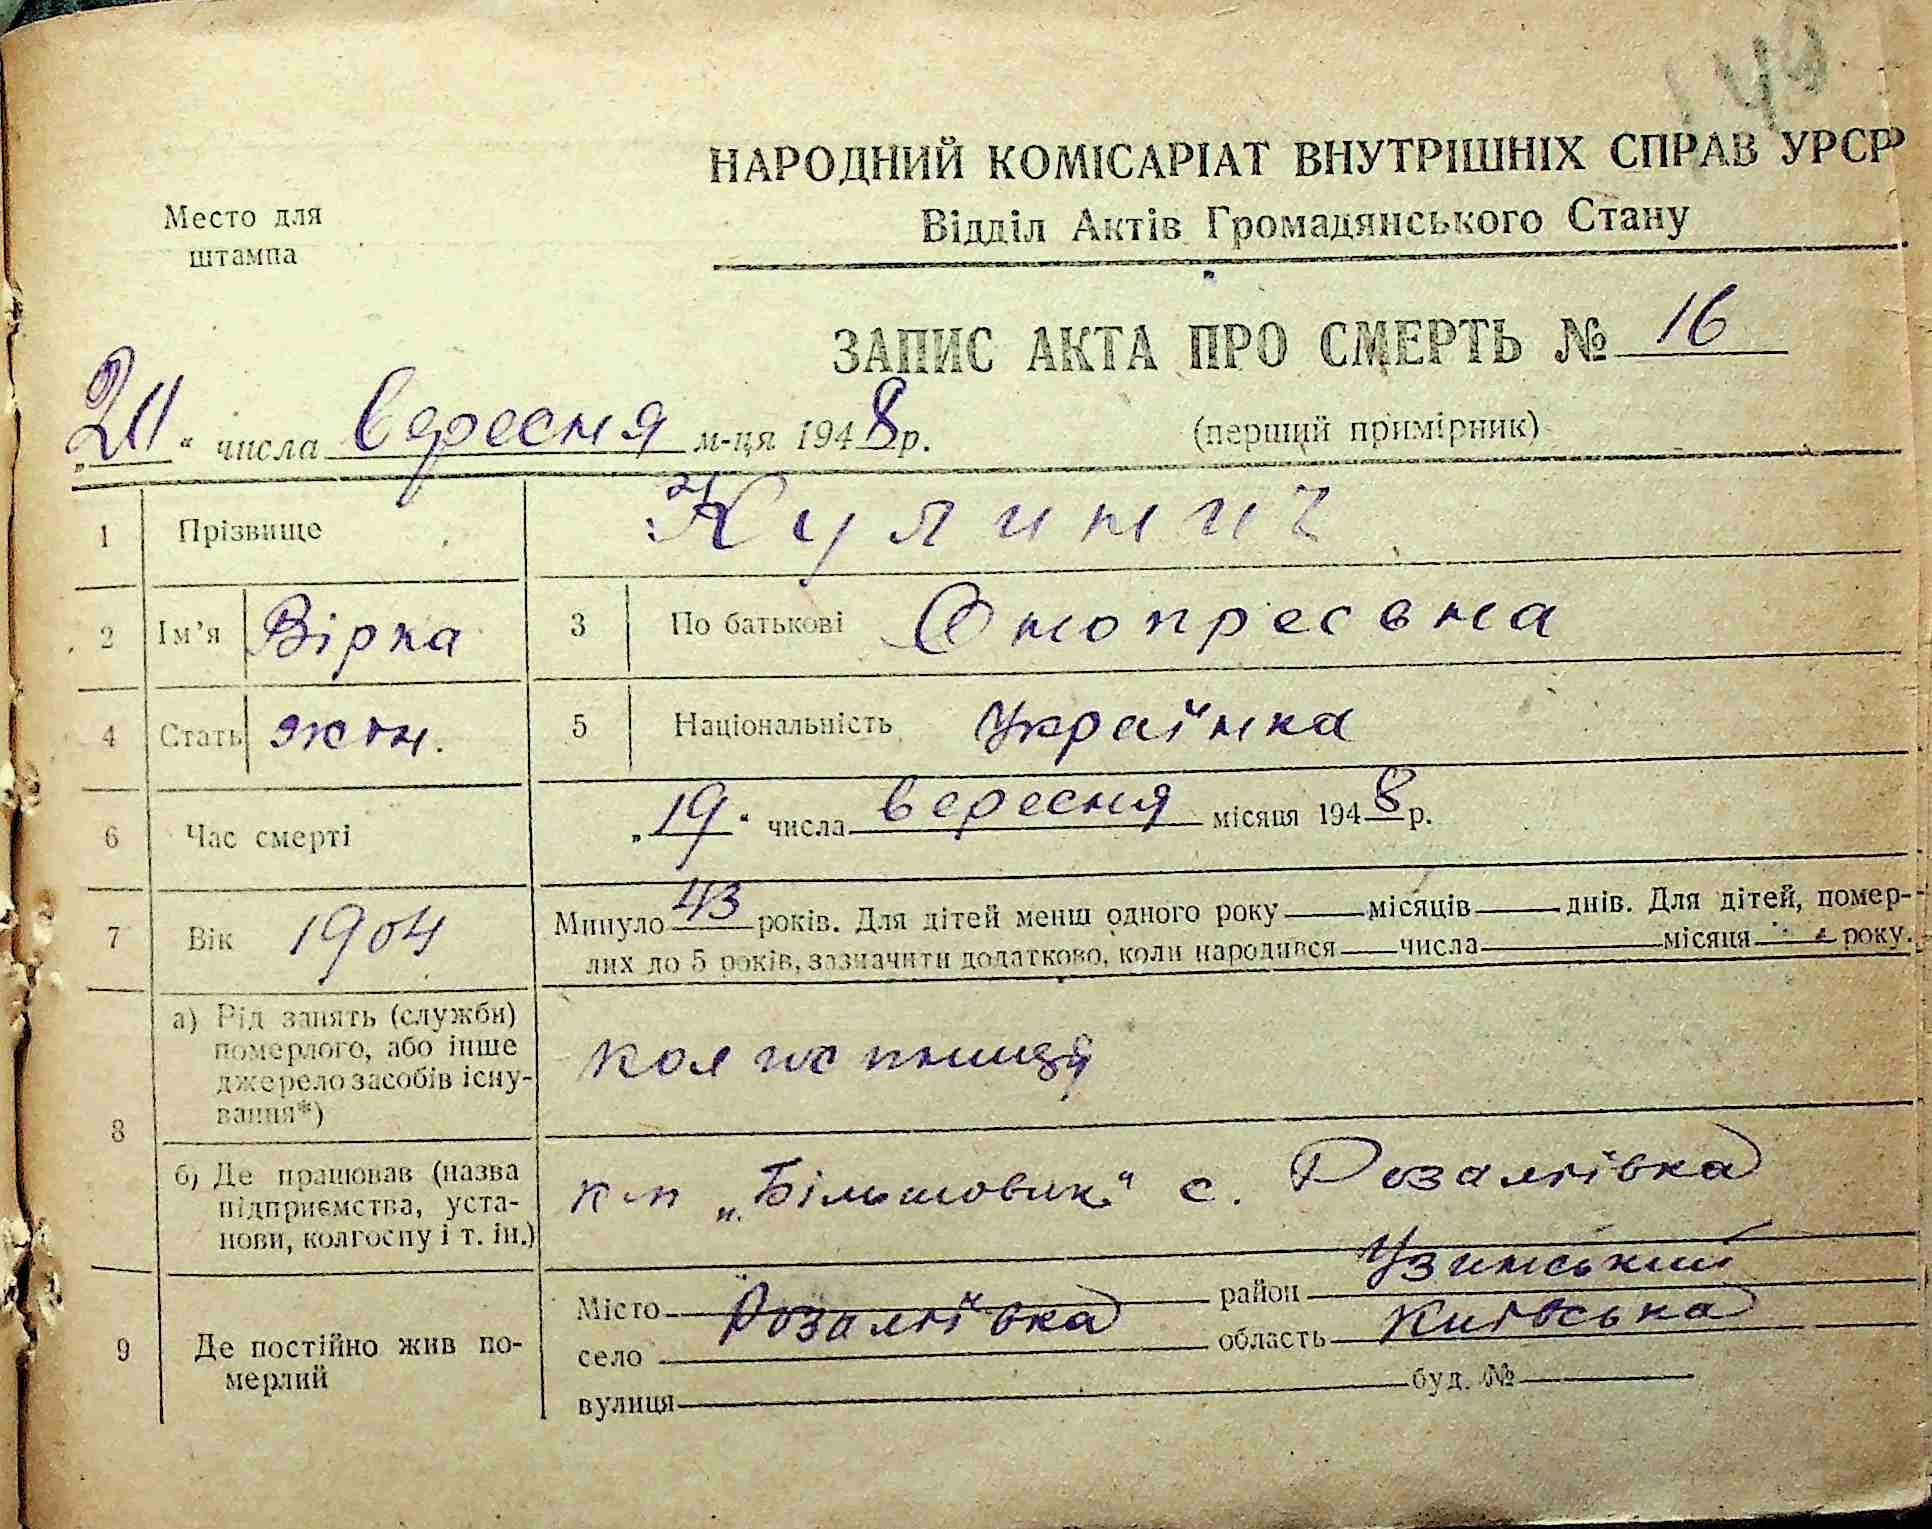 НАРОДНИЙ КОМІСАРІАТ ВНУТРІШНІХ СПРАВ УРСР
Відділ Актів Громадянського Стану
Место для
штампа
ЗАПИС АКТА ПРО СМЕРТЬ № 16
„20“ числа вересня м-ця 1948 р.
(перший примірник)
1 Прізвище Кулинич
2 Ім’я Вірка 3 По батькові Онопресвна
4 Стать жін. 5 Національність Українка
6 Час смерті „19“ числа вересня місяця 1948 р.
7 Вік 1904 Минуло 43 років. Для дітей менш одного року місяців днів. Для дітей, помер-
лих до 5 років, зазначити додатково, коли народився числа місяця року.
8 а) Рід занять (служби)
померлого, або інше
джерело засобів існу-
вання*)
колгоспниця
б) Де працював (назва
підприємства, уста-
нови, колгоспу і т. ін.)
к-п „Більшовик“ с. Розаліївка
9 Де постійно жив по-
мерлий
Місто район Узинський
село Розаліївка область Київська
вулиця буд. №